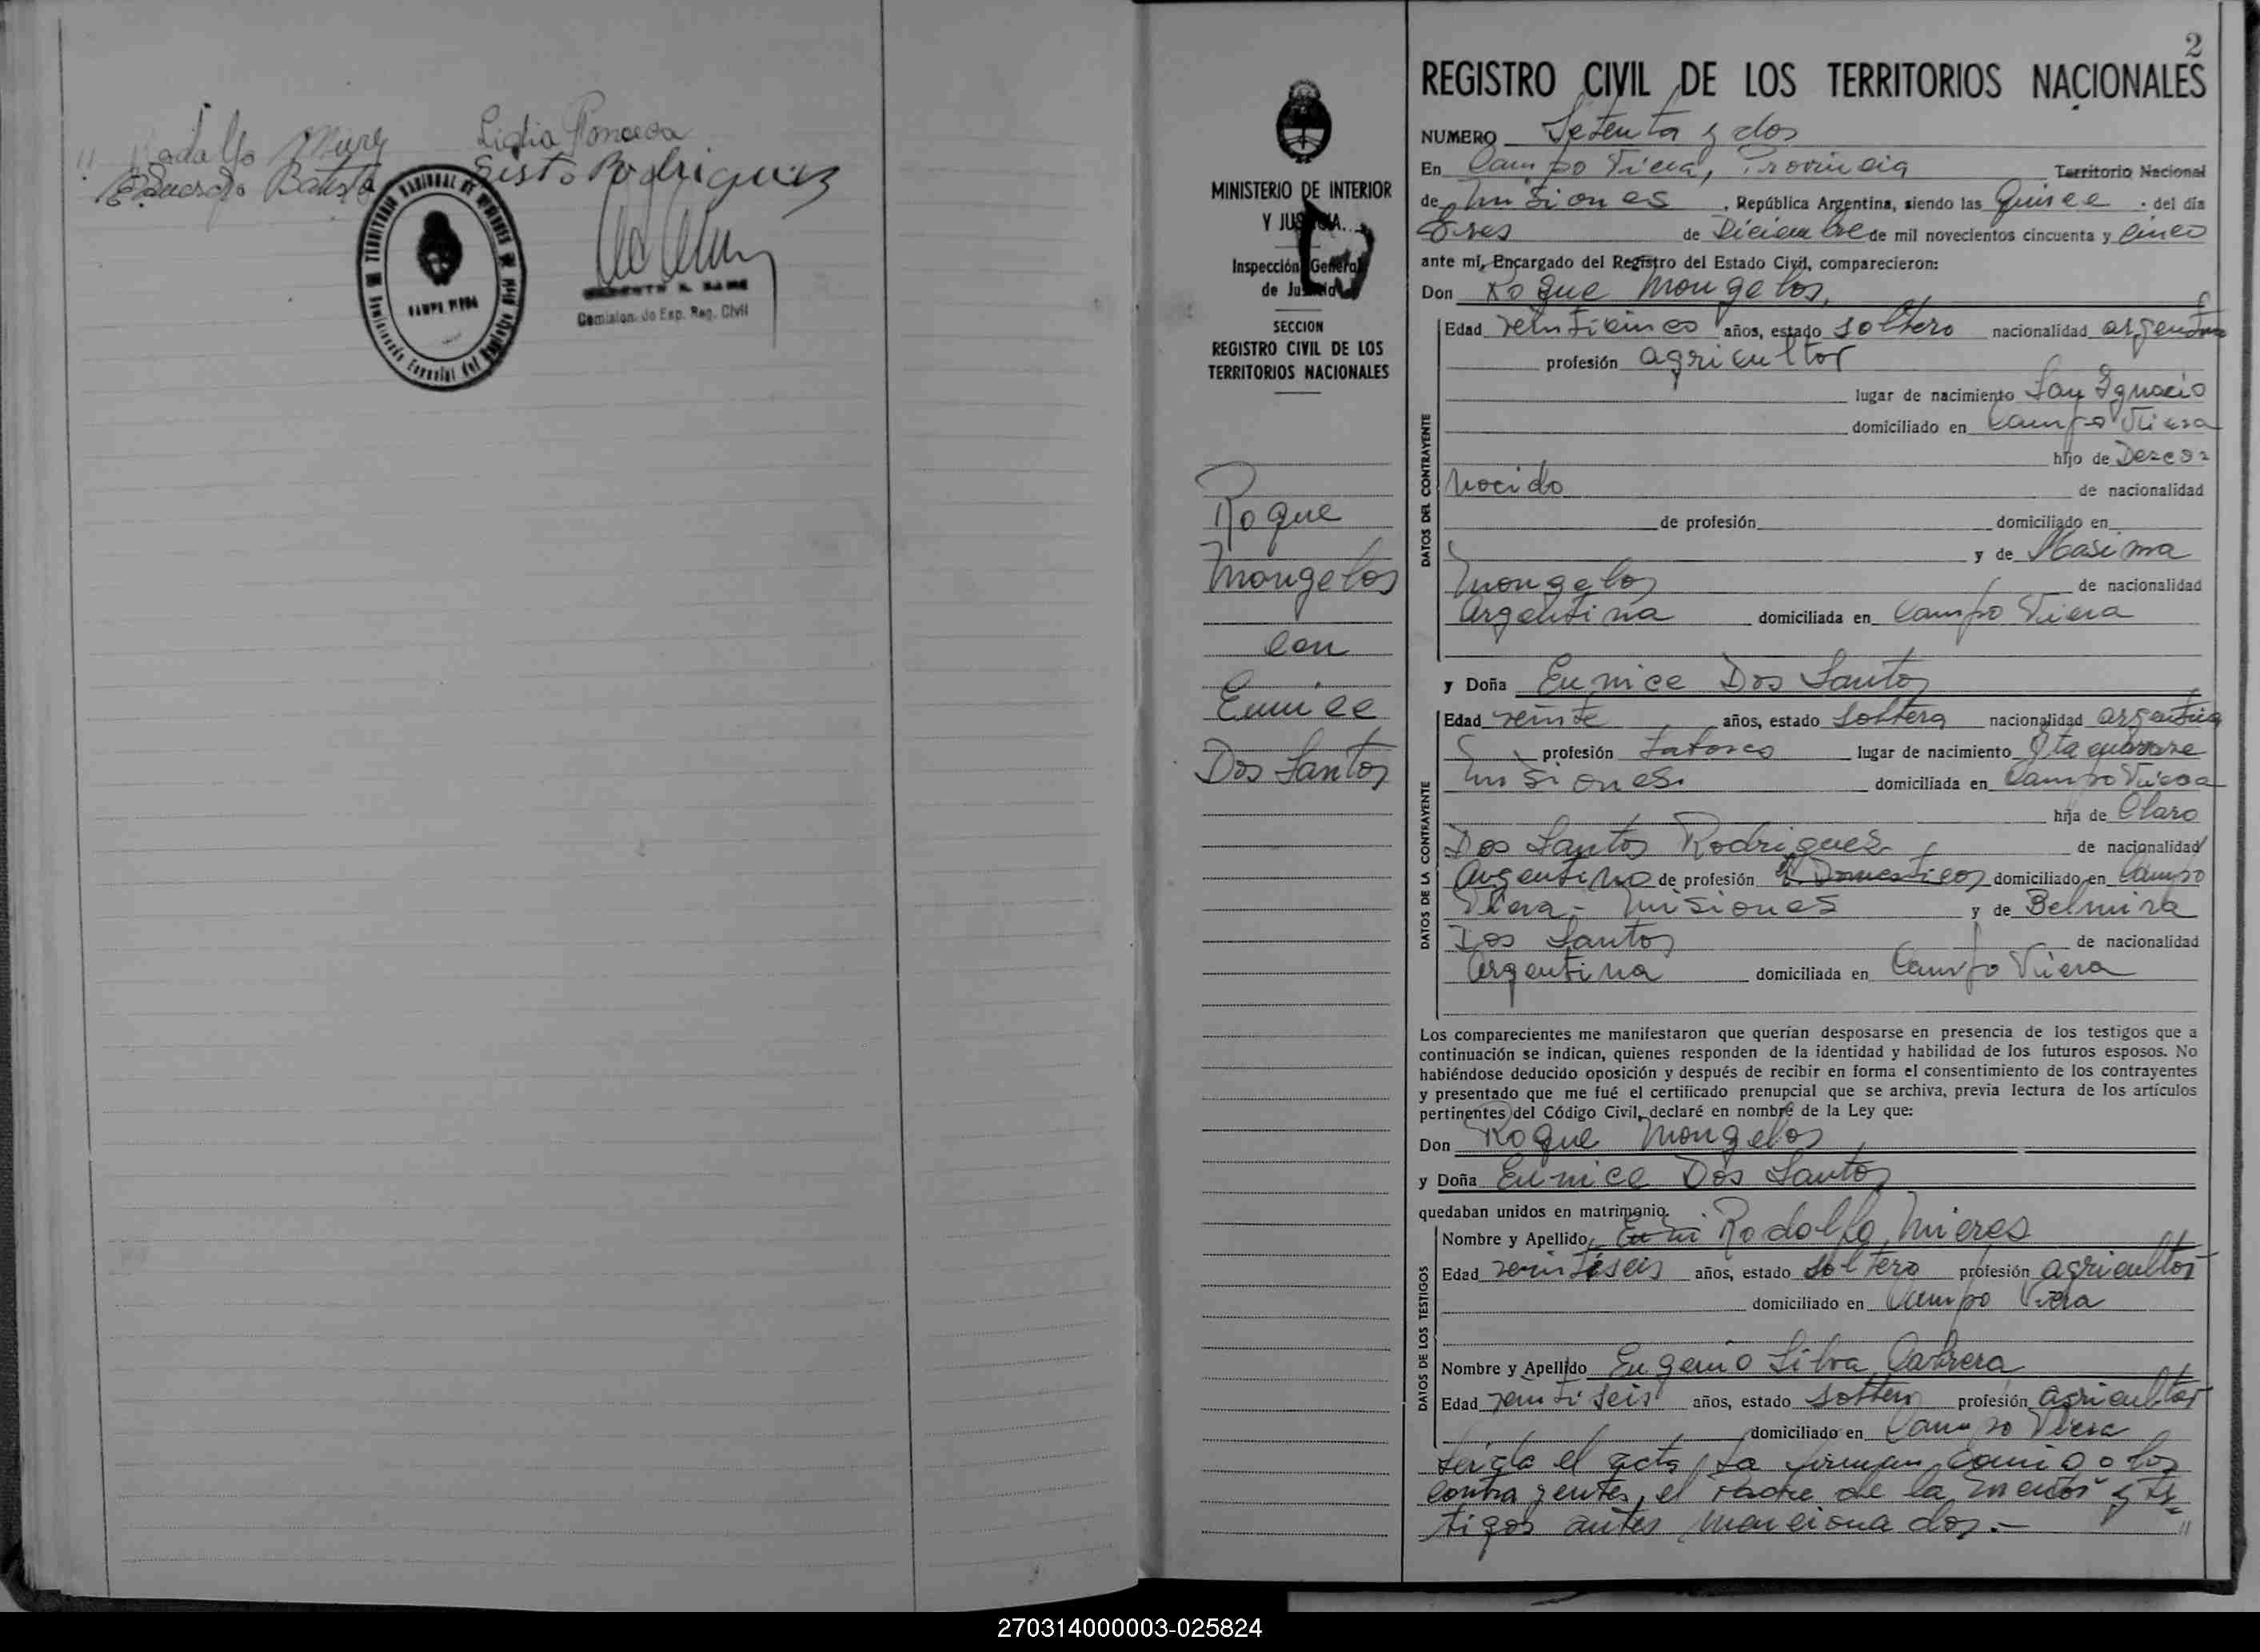 Rodolfo
Lidia Fonseca
Eduardo Batista
Sisto Rodriguez
TERRITORIO NACIONAL DE MISIONES
CAMPO VIERA
Comision. de Esp. Reg. Civil
MINISTERIO DE INTERIOR
Y JUSTICIA
Inspección General
de Justicia
SECCION
REGISTRO CIVIL DE LOS
TERRITORIOS NACIONALES
Roque
Mongelos
con
Eunice
Dos Santos
2
REGISTRO CIVIL DE LOS TERRITORIOS NACIONALES
NUMERO Setenta y dos
En Campo Viera, Provincia Territorio Nacional
de Misiones, República Argentina, siendo las Quince del día
Tres de Diciembre de mil novecientos cincuenta y cinco
ante mí, Encargado del Registro del Estado Civil, comparecieron:
Don Roque Mongelos,
DATOS DEL CONTRAYENTE
Edad veinticinco años, estado soltero nacionalidad argentino
profesión agricultor
lugar de nacimiento San Ignacio
domiciliado en Campo Viera
hijo de Desco=
nocido de nacionalidad
de profesión domiciliado en
y de Masima
Mongelos de nacionalidad
Argentina domiciliada en Campo Viera
y Doña Eunice Dos Santos
DATOS DE LA CONTRAYENTE
Edad veinte años, estado soltera nacionalidad argentina
profesión lugar de nacimiento
Misiones. domiciliada en Campo Viera
hija de Claro
Dos Santos Rodriguez de nacionalidad
Argentino de profesión Domesticos domiciliado en Campo
Viera - Misiones y de Belmira
Dos Santos de nacionalidad
Argentina domiciliada en Campo Viera
Los comparecientes me manifestaron que querían desposarse en presencia de los testigos que a
continuación se indican, quienes responden de la identidad y habilidad de los futuros esposos. No
habiéndose deducido oposición y después de recibir en forma el consentimiento de los contrayentes
y presentado que me fué el certificado prenupcial que se archiva, previa lectura de los artículos
pertinentes del Código Civil, declaré en nombre de la Ley que:
Don Roque Mongelos
y Doña Eunice Dos Santos
quedaban unidos en matrimonio.
DATOS DE LOS TESTIGOS
Nombre y Apellido Rodolfo Mieres
Edad veintiseis años, estado soltero profesión agricultor
domiciliado en Campo Viera
Nombre y Apellido Eugenio Silva Cabrera
Edad veintiseis años, estado soltero profesión agricultor
domiciliado en Campo Viera
Leida el acta, la firman conmigo los
contrayentes, el Padre de la menor y tes=
tigos antes mencionados.-
270314000003-025824